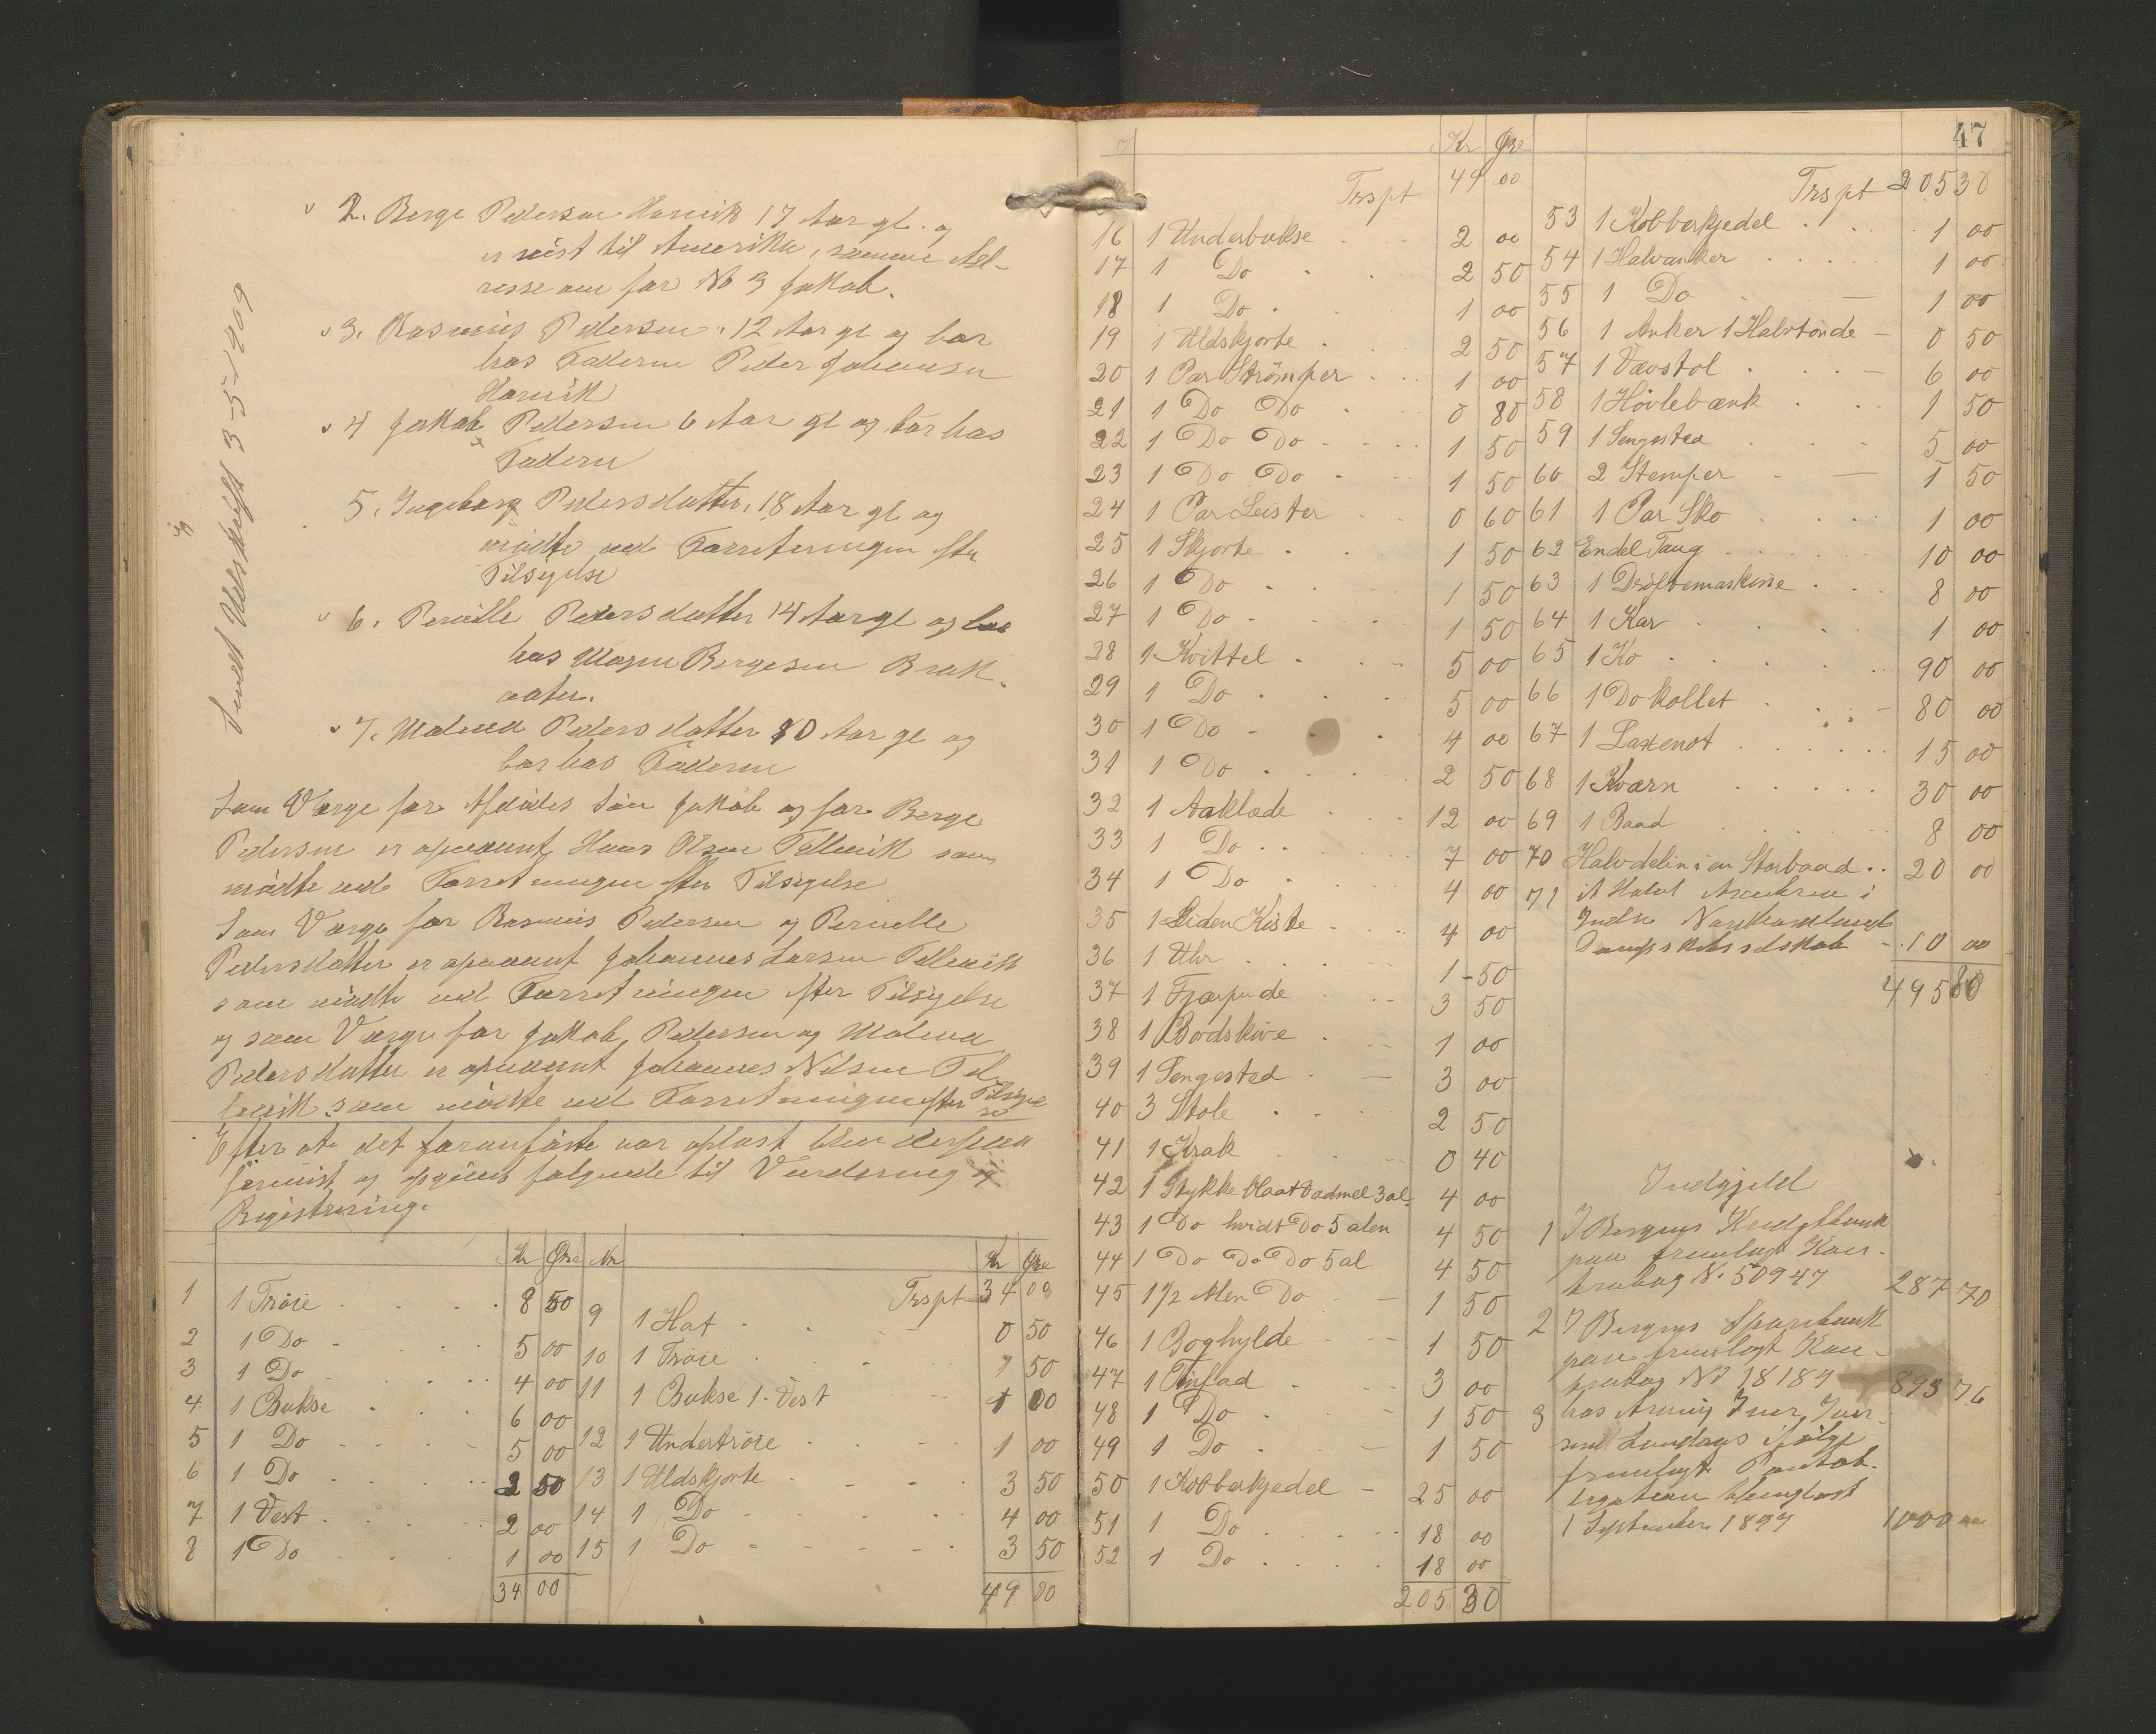 Sendt Udskrift 3-5-1909
2. Berge Pedersen Hamik 17 Aar gl. og
er reist til Amerika, samme Ad-
resse som for No 3 Jakob.
3. Rasmus Pedersen. 12 Aar gl og bor
hos Faderen Peder Johansen
Hamik
4 Jakob Pedersen 6 Aar gl og bor hos
Faderen
5. Ingeborg Pedersdatter. 18 Aar gl og
mødte ved Forretningen efter
Tilsigelse
6. Pernille Pedersdatter 14 Aar gl og bor
hos Mogens Bergesen Brak-
7. Malena Pedersdatter 10 Aar gl og
bor hos Faderen
Som Værge for Afdødes Søn Jakob og for Berge
Pedersen er opnævnt Hans Olsen Fellevik som
mødte ved Forretningen efter Tilsigelse
Som Værge for Rasmus Pedersen og Pernille
Pedersdatter er opnævnt Johannes Larsen Fellevik
som mødte ved Forretningen efter Tilsigelse
og som Værge for Jakob Pedersen og Malena
Pedersdatter er opnævnt Johannes Nilsen Fel-
levik som mødte ved Forretningen efter Tilsigel
se
Efter at det foranførte var oplæst blev
og opgivet følgende til Vurdering og
Registrering.
Kr Øre No Kr Øre
Trspt 34 00
1 1 Trøie 8 50 9 1 Hat 0 50
2 1 Do 5 00 10 1 Trøie 1 50
3 1 Do 4 00 11 1 Bukse 1 Vest 1 00
4 1 Bukse 6 00 12 1 Undertrøie 1 00
5 1 Do 5 00 13 1 Uldskjorte 3 50
6 1 Do 2 50 14 1 Do 4 00
7 1 Vest 2 00 15 1 Do 3 50
8 1 Do 1 00
34 00 49 00
47
Kr Øre
Trspt 49 00
16 1 Underbukse 2 00
17 1 Do 2 50
18 1 Do 1 00
19 1 Uldskjorte 2 50
20 1 Par Strømper 1 00
21 1 Do Do 0 80
22 1 Do Do 1 50
23 1 Do Do 1 50
24 1 Par Leister 0 60
25 1 Skjorte 1 50
26 1 Do 1 50
27 1 Do 1 50
28 1 Kvittel 5 00
29 1 Do 5 00
30 1 Do 4 00
31 1 Do 2 50
32 1 Aaklæde 12 00
33 1 Do 7 00
34 1 Do 4 00
35 1 Liden Kiste 4 00
36 1 Uhr 1 50
37 1 Fjærpude 3 50
38 1 Bordskive 1 00
39 1 Sengested 3 00
40 3 Stole 2 50
41 1 Krak 0 40
42 1 Stykke blaat Vadmel 3 al. 4 00
43 1 Do hvidt Do 5 alen 4 50
44 1 Do Do Do 5 al 4 50
45 1 1/2 Alen Do 1 50
46 1 Boghylde 1 50
47 1 Tinfad 3 00
48 1 Do 1 50
49 1 Do 1 50
50 1 Kobberkjedel 25 00
51 1 Do 18 00
52 1 Do 18 00
205 30
Trspt 205 30
53 1 Kobberkjedel 1 00
54 1 Halvanker 1 00
55 1 Do 1 00
56 1 Anker 1 Halvtønde 0 50
57 1 Vævstol 6 00
58 1 Høvlebænk 1 50
59 1 Sengested 5 00
60 2 Stemper 1 50
61 1 Par Sko 1 00
62 Endel Taug 10 00
63 1 Drøftemaskine 8 00
64 1 Kar 1 00
65 1 Ko 90 00
66 1 Do kollet 80 00
67 1 Laxenot 15 00
68 1 Kværn 30 00
69 1 Baad 8 00
70 Halvdelin i en Storbaad 20 00
71 i
Indre Nordhordlands
Dampskibsselskab 10 00
495 80
Indgjeld
1 I Bergens Kreditbank
paa fremlagt Kon-
trabog No 50947 287 70
2 I Bergens Sparebank
paa fremlagt Kon-
trabog No 18187 893 76
3 hos Iver Iver-
sen ifølge
fremlagt Pantob-
ligation thinglæst
1 September 1897 1000 00